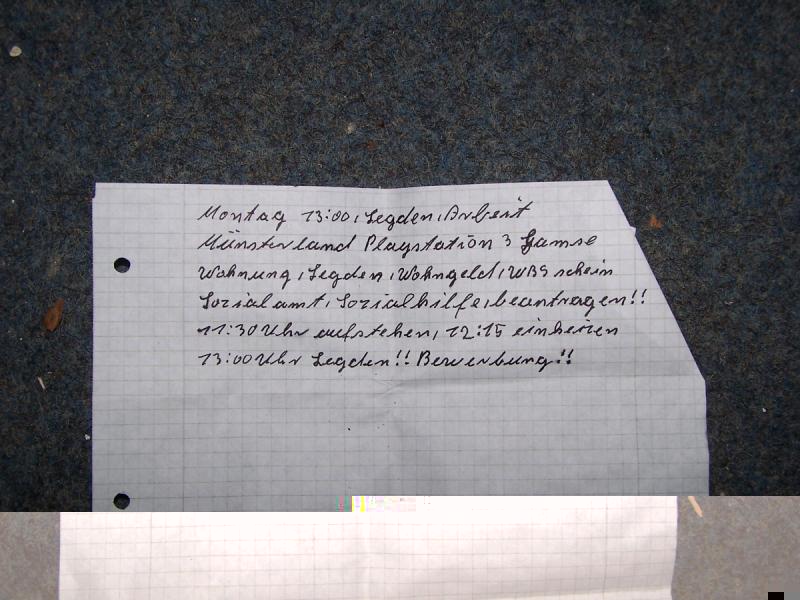 Montag 13:00, Legden, Arbeit
Münsterland Playstation 3 Gamse
Wohnung, Legden, Wohngeld, WBS schein
Sozialamt, Sozialhilfe, beantragen!!
11:30 Uhr aufstehen, 12:15 einheizen
13:00 Uhr Legden!! Bewerbung!!